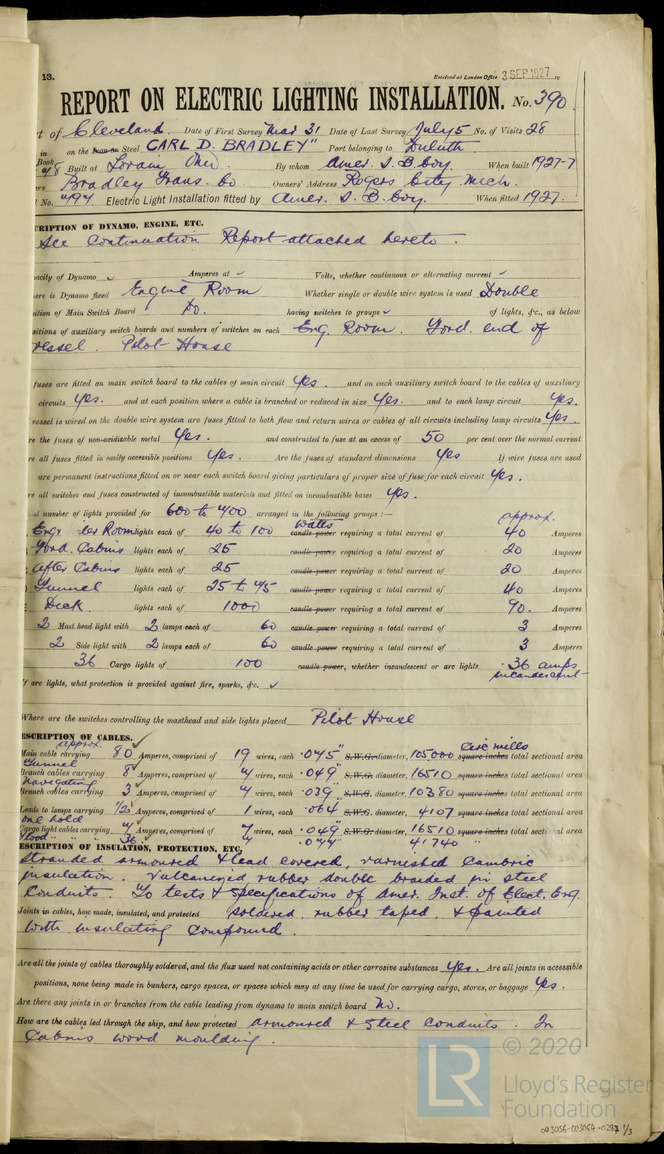 13.
Received at London Office 3 SEP 1927 19
REPORT ON ELECTRIC LIGHTING INSTALLATION. No. 390.
t of Cleveland. Date of First Survey Mar 31 Date of Last Survey July 5 No. of Visits 28
in on the Iron or Steel CARL D. BRADLEY" Port belonging to Duluth
Book 48 Built at Lorain Ohio. By whom Amer. S. B. Coy. When built 1927-7
ers Bradley Trans. Co Owners' Address Rogers City. Mich.
No. 794 Electric Light Installation fitted by Amer. S. B. Coy. When fitted 1927.
CRIPTION OF DYNAMO, ENGINE, ETC.
See Continuation Report attached hereto.
pacity of Dynamo ✓ Amperes at ✓ Volts, whether continuous or alternating current ✓
ere is Dynamo fixed Engine Room Whether single or double wire system is used Double
sition of Main Switch Board Do. having switches to groups ✓ of lights, &c., as below
sitions of auxiliary switch boards and numbers of switches on each Eng. Room. Ford. end of
vessel. Pilot House
fuses are fitted on main switch board to the cables of main circuit Yes. and on each auxiliary switch board to the cables of auxiliary
circuits Yes. and at each position where a cable is branched or reduced in size Yes. and to each lamp circuit Yes.
vessel is wired on the double wire system are fuses fitted to both flow and return wires or cables of all circuits including lamp circuits Yes.
re the fuses of non-oxidizable metal Yes. and constructed to fuse at an excess of 50 per cent over the normal current
re all fuses fitted in easily accessible positions Yes. Are the fuses of standard dimensions Yes If wire fuses are used
are permanent instructions fitted on or near each switch board giving particulars of proper size of fuse for each circuit Yes.
re all switches and fuses constructed of incombustible materials and fitted on incombustible bases Yes.
al number of lights provided for 600 to 700 arranged in the following groups :— approx.
Engr der Room lights each of 40 to 100 watts candle-power requiring a total current of 40 Amperes
Ford. Cabins lights each of 25 candle-power requiring a total current of 20 Amperes
After Cabins lights each of 25 candle-power requiring a total current of 20 Amperes
Tunnel lights each of 25 to 75 candle-power requiring a total current of 40 Amperes
Deck. lights each of 1000 candle-power requiring a total current of 90. Amperes
2 Mast head light with 2 lamps each of 60 candle-power requiring a total current of 3 Amperes
2 Side light with 2 lamps each of 60 candle-power requiring a total current of 3 Amperes
36 Cargo lights of 100 candle-power, whether incandescent or arc lights 36 amps
incandescent
If arc lights, what protection is provided against fire, sparks, &c. ✓
Where are the switches controlling the masthead and side lights placed Pilot House
ESCRIPTION OF CABLES.
approx. Circ mills
Main cable carrying 80 Amperes, comprised of 19 wires, each .075" S.W.G. diameter, 105000 square inches total sectional area
Tunnel
Branch cables carrying 8 Amperes, comprised of 7 wires, each .049" S.W.G. diameter, 16510 square inches total sectional area
Navigating
Branch cables carrying 3 Amperes, comprised of 7 wires, each .039" S.W.G. diameter, 10380 square inches total sectional area
Leads to lamps carrying 1/2 Amperes, comprised of 1 wires, each .064 S.W.G. diameter, 4107 square inches total sectional area
one hold
Cargo light cables carrying 7 Amperes, comprised of 7 wires, each .049" S.W.G. diameter, 16510 square inches total sectional area
36 7 .077" 41740
ESCRIPTION OF INSULATION, PROTECTION, ETC.
Stranded armoured & lead covered, varnished Cambric
insulation. Vulcanized rubber double braided in steel
Conduits. To tests & specifications of Amer. Inst. of Elect. Eng.
Joints in cables, how made, insulated, and protected soldered, rubber taped, & painted
with insulating compound.
Are all the joints of cables thoroughly soldered, and the flux used not containing acids or other corrosive substances Yes. Are all joints in accessible
positions, none being made in bunkers, cargo spaces, or spaces which may at any time be used for carrying cargo, stores, or baggage Yes.
Are there any joints in or branches from the cable leading from dynamo to main switch board No.
How are the cables led through the ship, and how protected Armoured & Steel conduits. In
Cabins wood moulding.
LR © 2020
Lloyd's Register
Foundation
003056-003064-0287 1/3